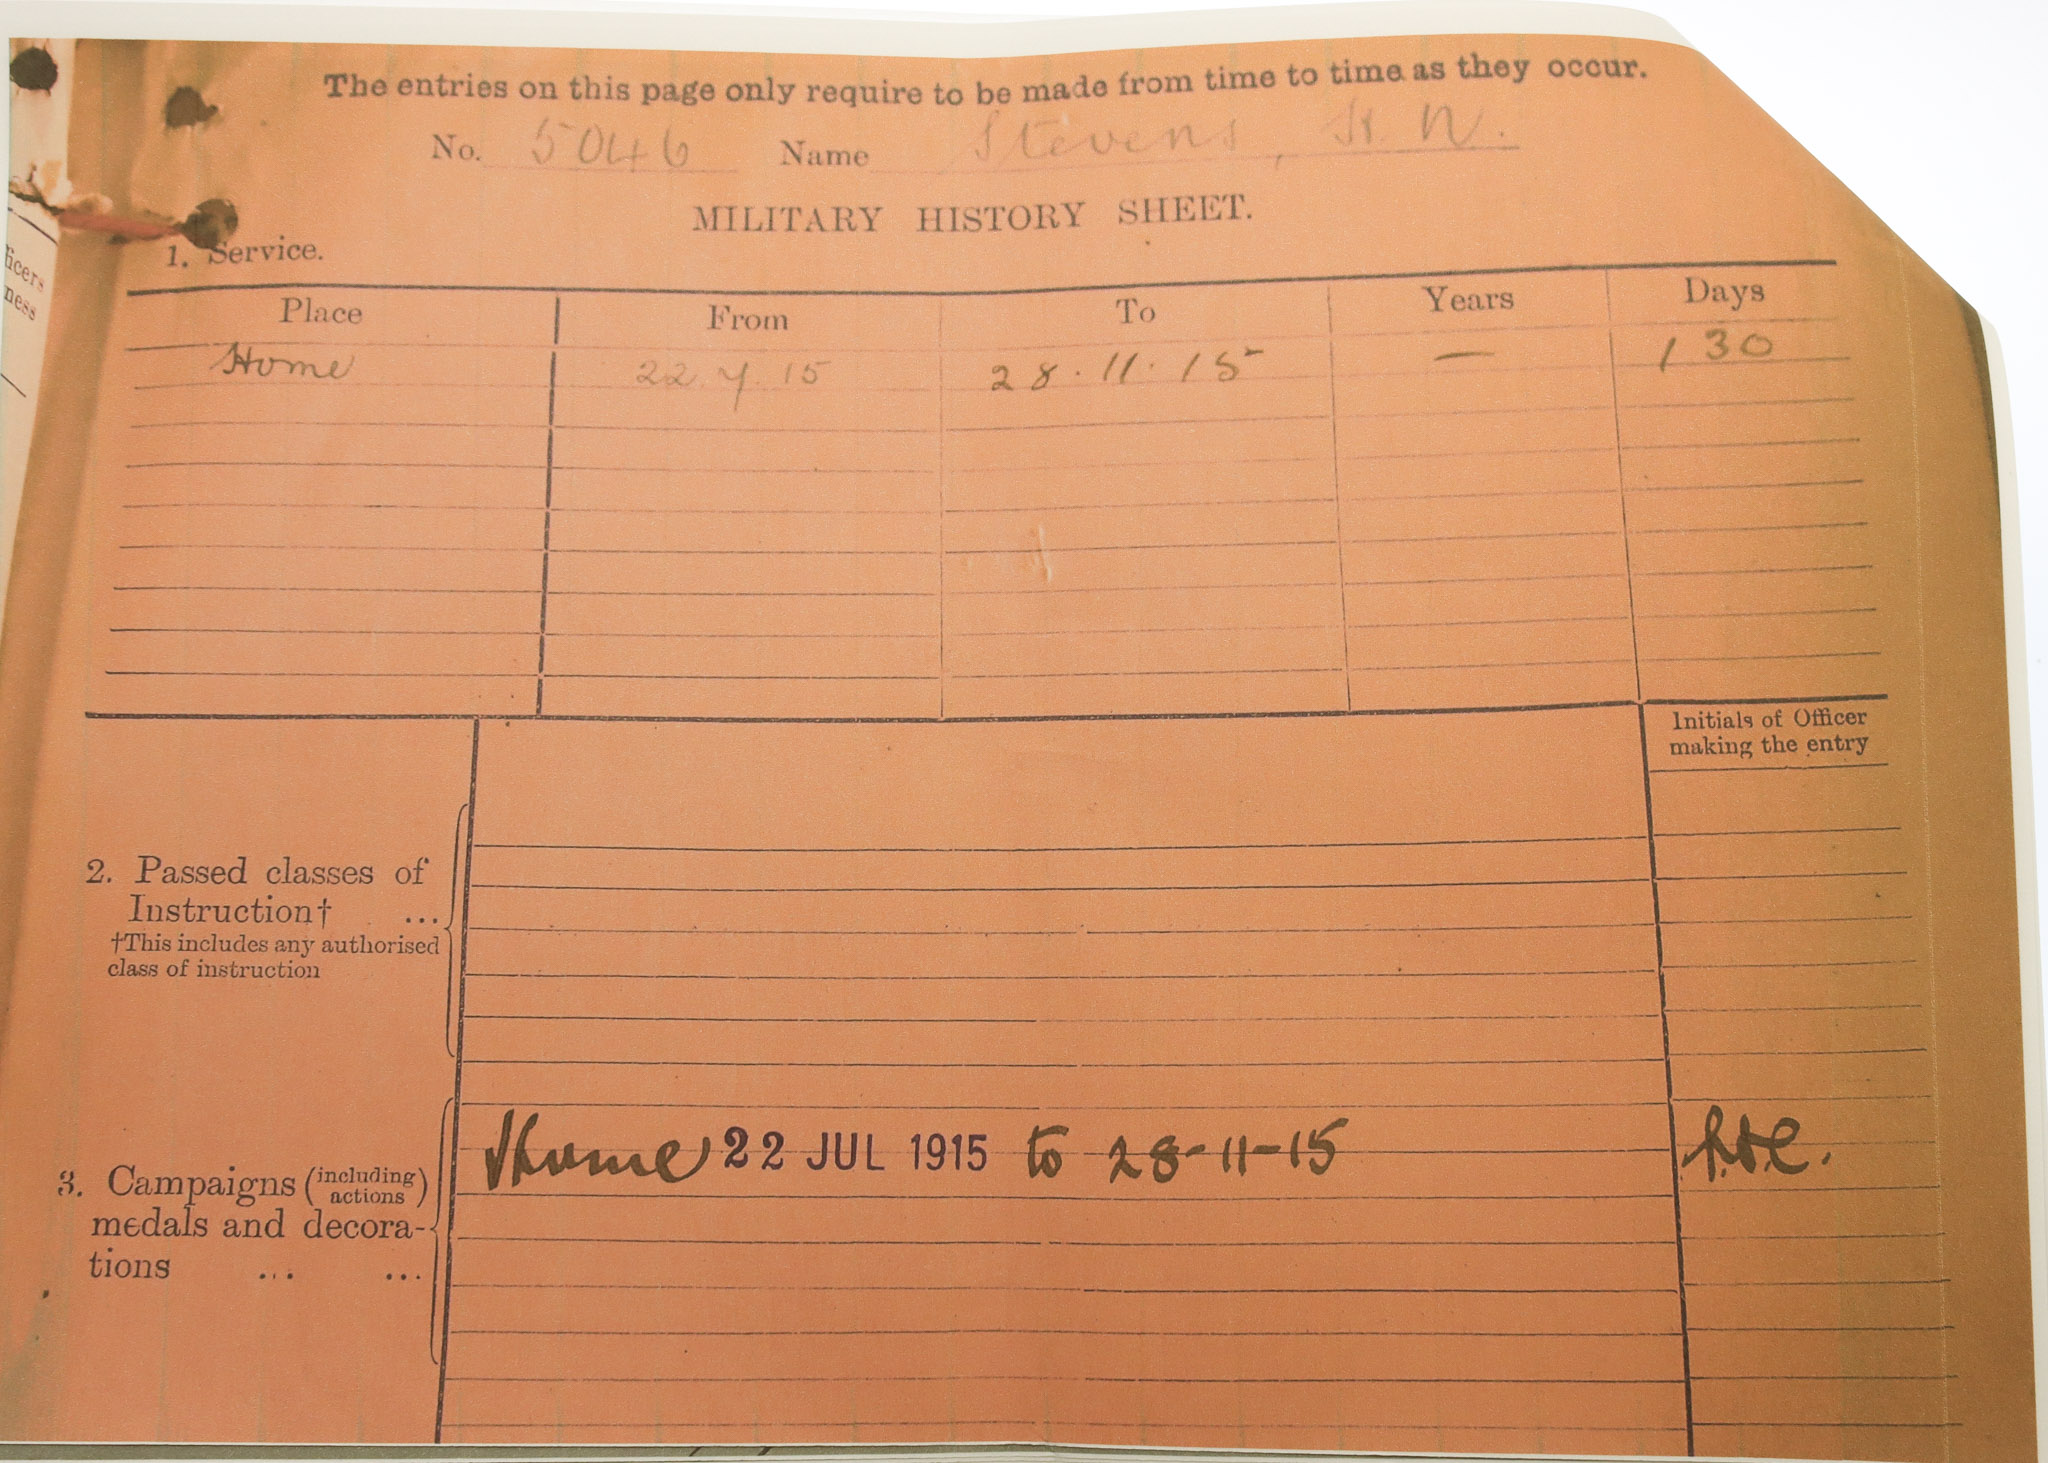 The entries on this page only require to be made from time to time as they occur.
No. 5046 Name Stevens, H. W.
MILITARY HISTORY SHEET.
1. Service.
Place From To Years Days
Home 22.7.15 28.11.15 — 130
ficers
ness
Initials of Officer
making the entry
2. Passed classes of
Instruction† ...
†This includes any authorised
class of instruction
Home 22 JUL 1915 to 28-11-15
3. Campaigns (including
actions)
medals and decora-
tions ... ...